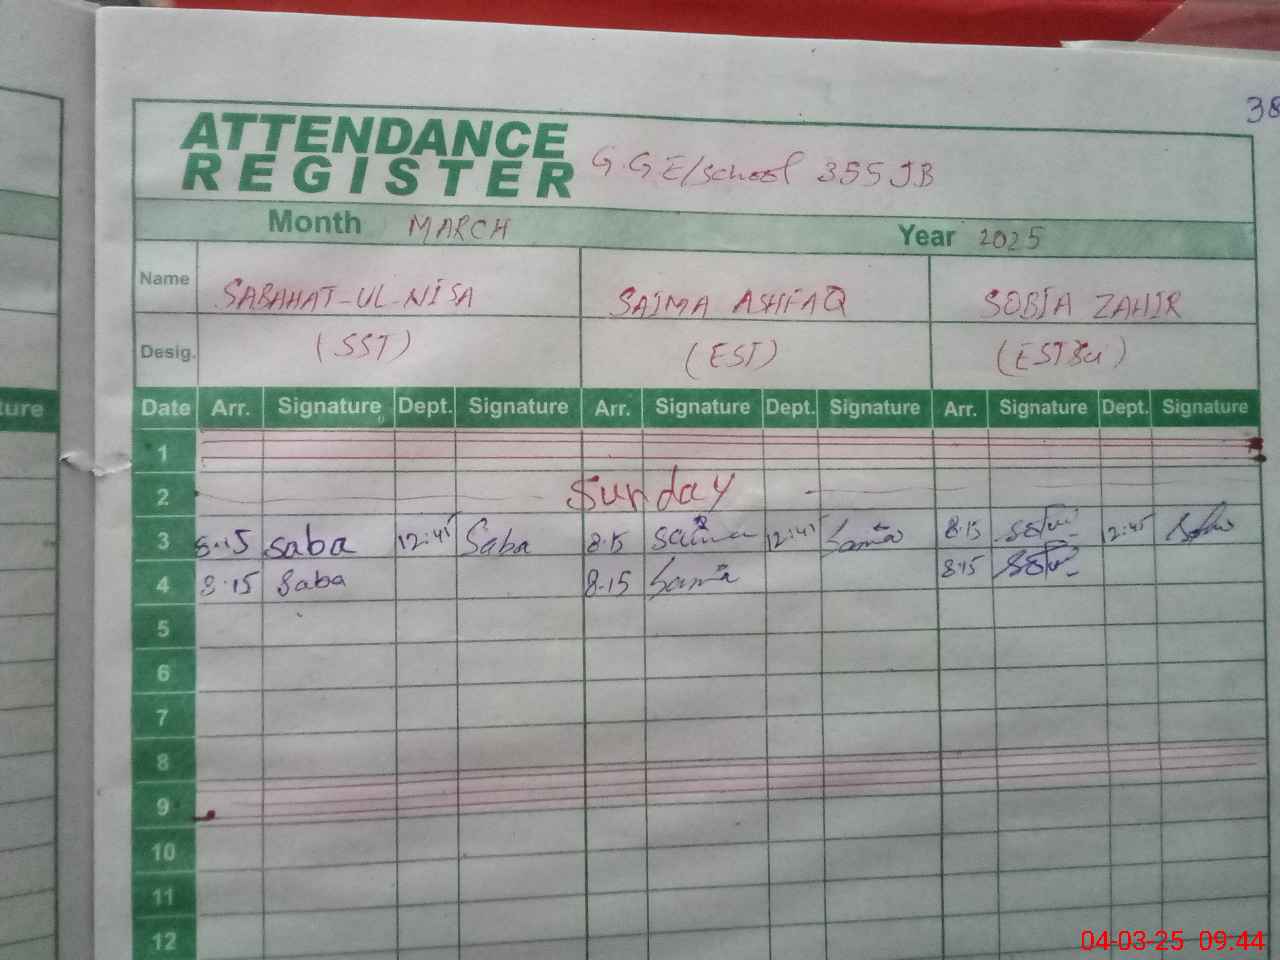 38
ATTENDANCE
REGISTER G.G.E/School 355 JB
Month MARCH Year 2025
Name SABAHAT-UL-NISA SAIMA ASHFAQ SOBIA ZAHIR
Desig. (SST) (EST) (EST Sci)
ture Date Arr. Signature Dept. Signature Arr. Signature Dept. Signature Arr. Signature Dept. Signature
1
2 Sunday
3 8·15 Saba 12:45 Saba 8·15 Saima 12:45 Saima 8·15 12:45
4 8·15 Saba 8·15 Saima 8·15
5
6
7
8
9
10
11
12
04-03-25 09:44